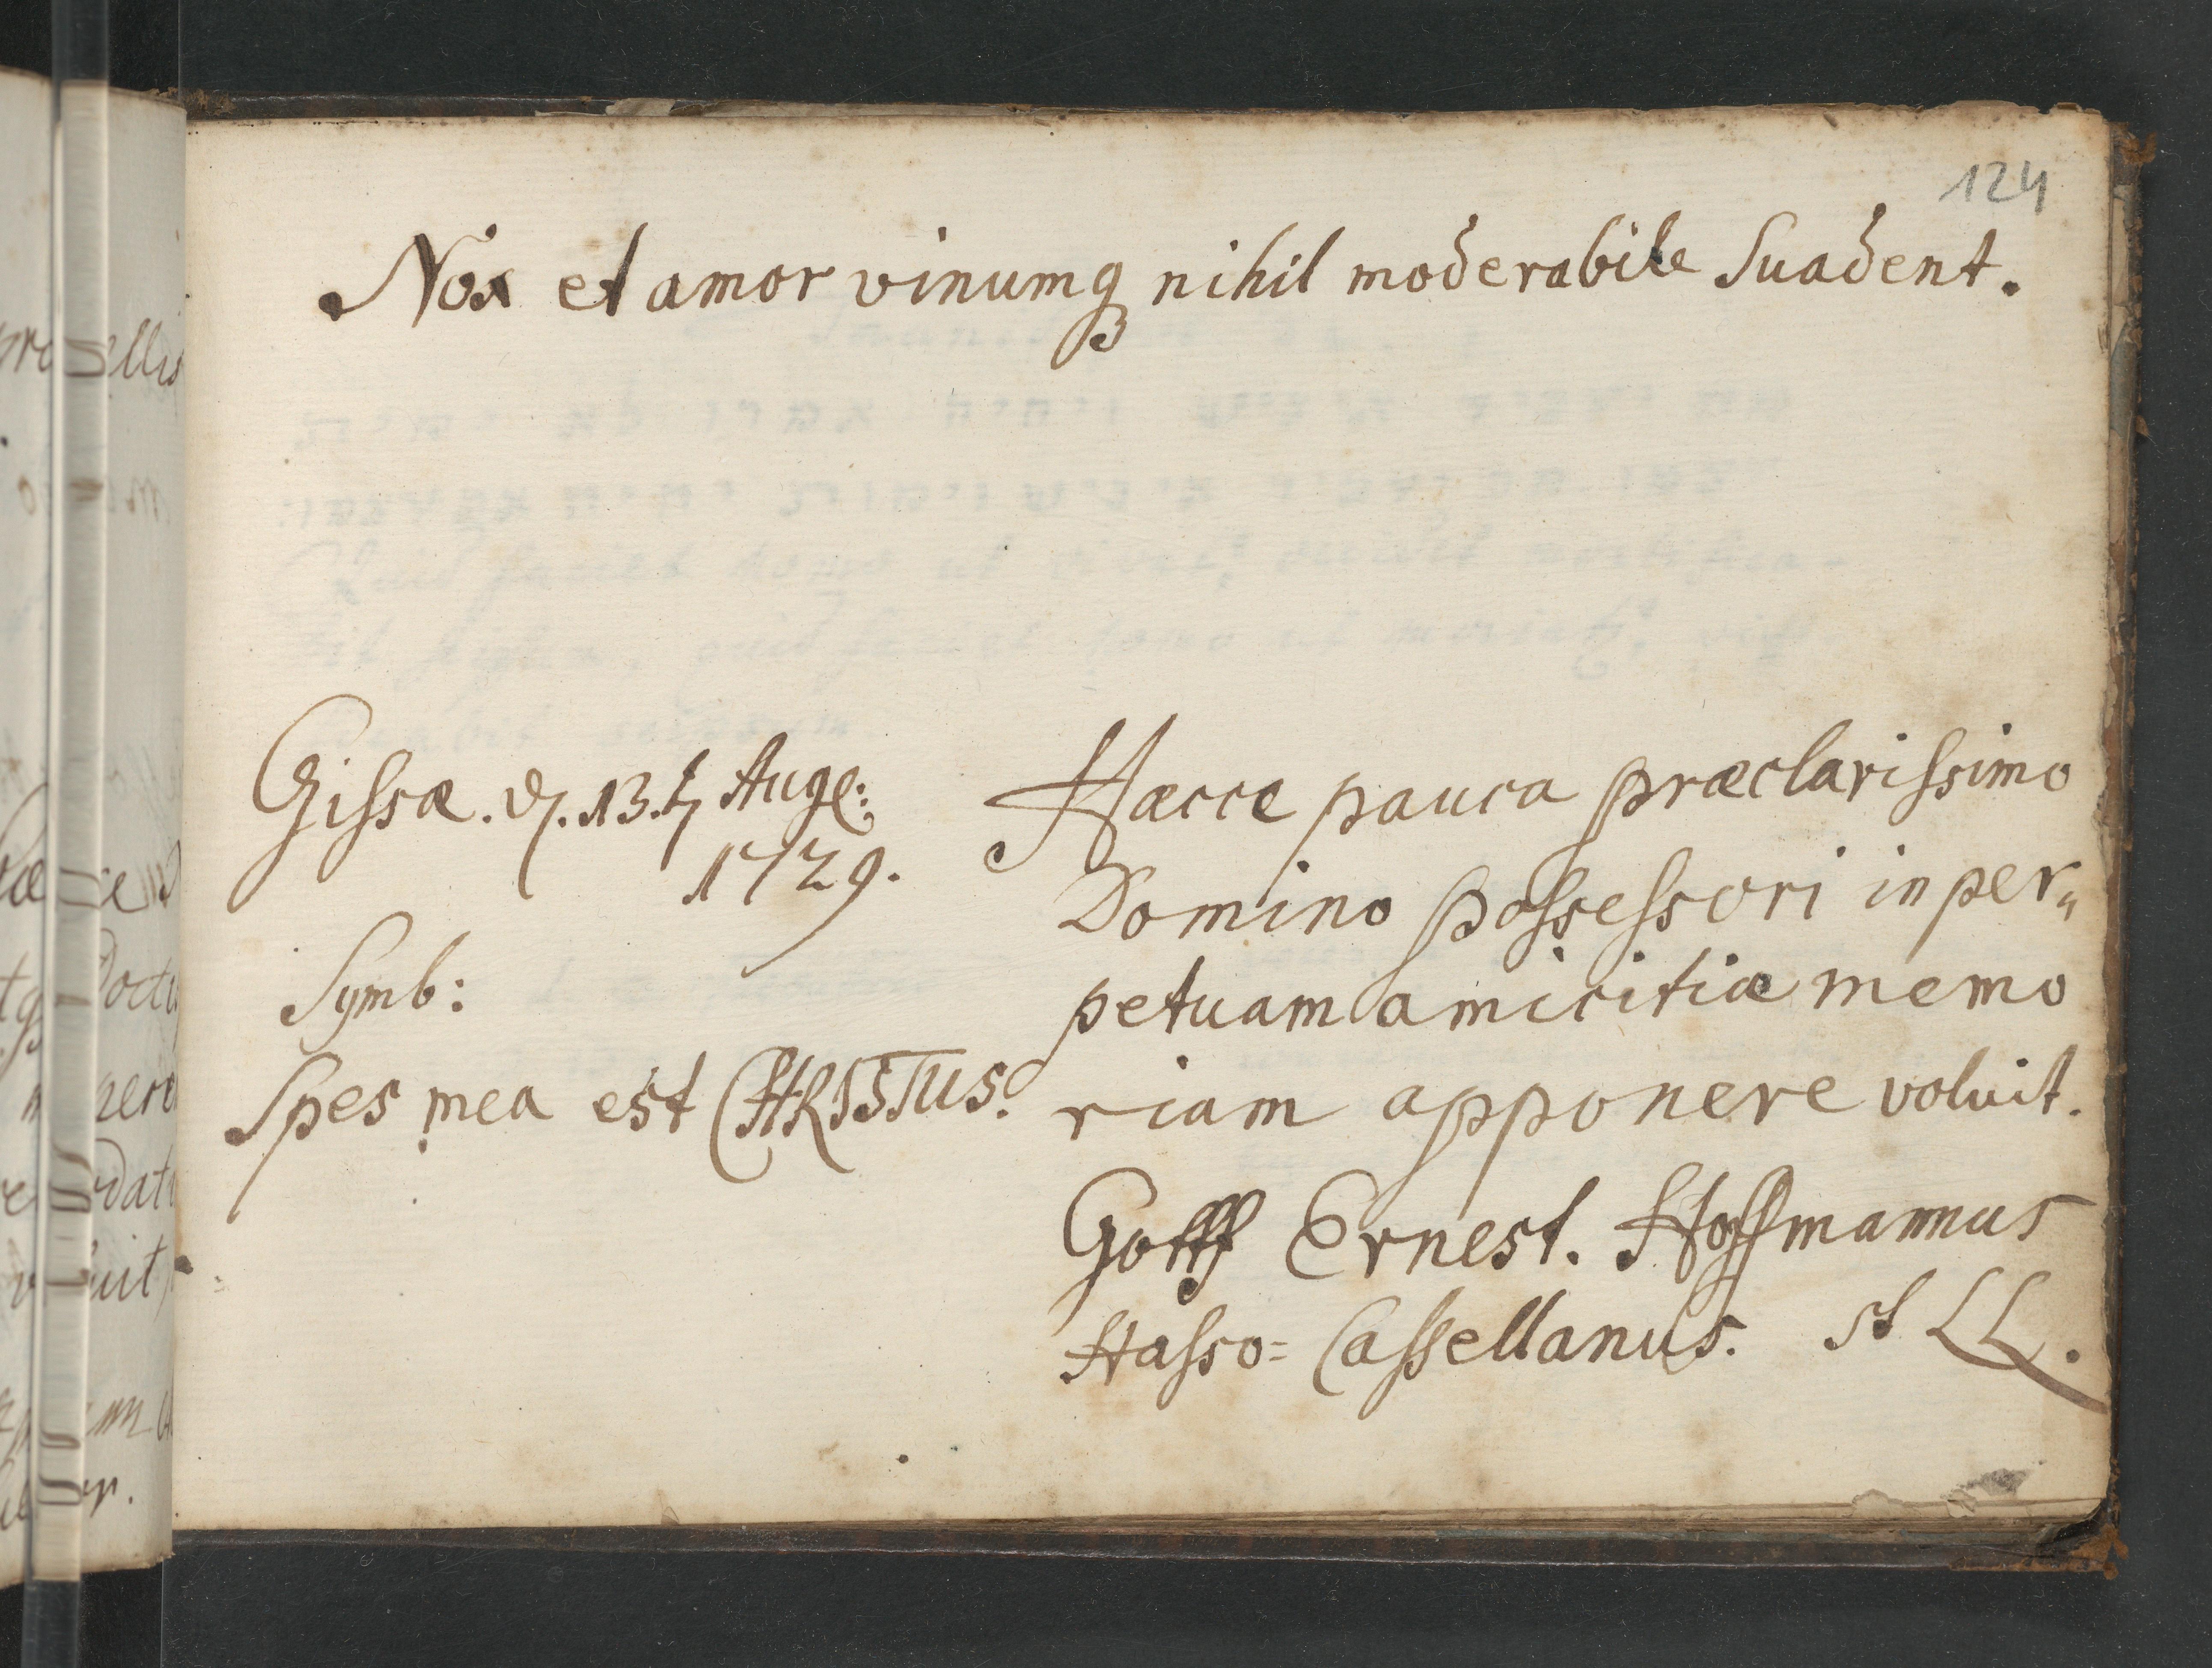 124
Nox et amor vinumq nihil moderabile Suadent.
Gissæ. d. 13. Aug:
1729.
Symb:
Spes mea est CHRISTUS.
Hæcce pauca præclarissimo
Domino possessori in per„
petuam amicitiæ memo
riam apponere voluit.
Gottf Ernest. Hoffmannus
Hasso= Cassellanus. LL.